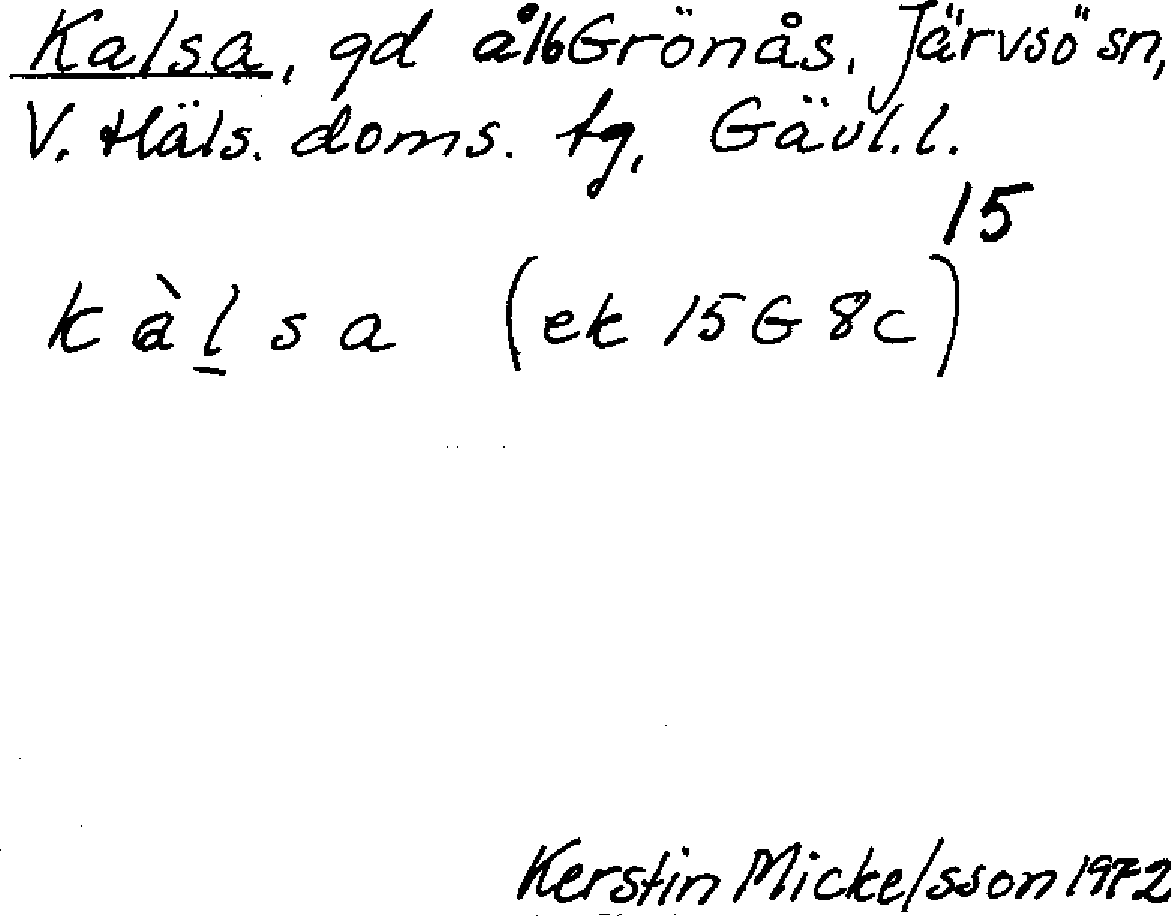 Kalsa, gd å 16 Grönås, Järvsö sn,
V. Häls. doms. tg, Gävl. l.
15
kàl̲sa (ek 15G 8c)
Kerstin Mickelsson 1972